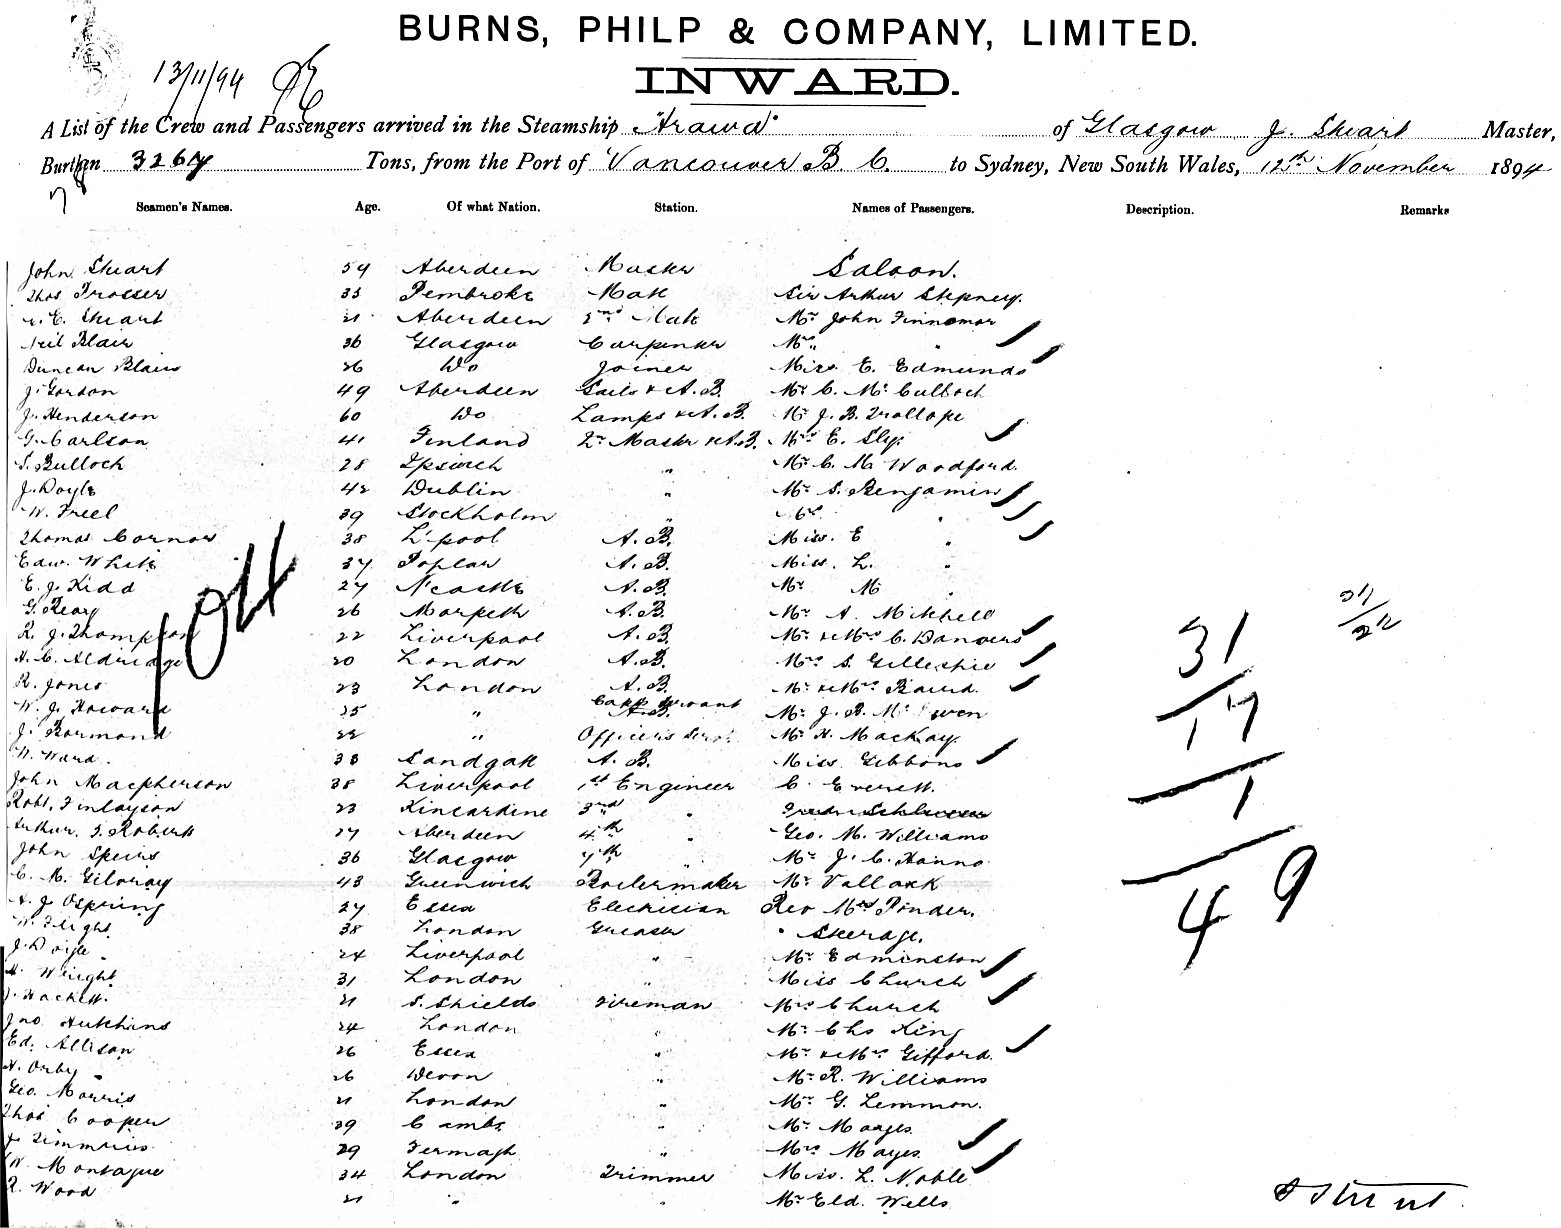 BURNS, PHILP & COMPANY, LIMITED.
INWARD.
13/11/94
A List of the Crew and Passengers arrived in the Steamship "Arawa" of Glasgow J. Stuart Master,
Burthen 3267 Tons, from the Port of Vancouver B. C. to Sydney, New South Wales, 12th November 1894
Seamen's Names. Age. Of what Nation. Station. Names of Passengers. Description. Remarks
John Stuart 59 Aberdeen Master Saloon.
Thos Prosser 33 Pembroke Mate Sir Arthur Stepney.
E. Stuart 21 Aberdeen 2nd Mate Mr John Finnemor
Neil Blair 36 Glasgow Carpenter Mrs "
Duncan Blair 26 Do Joiner Miss E. Edmunds
J. Gordon 49 Aberdeen Sails & A.B. Mr C. McCulloch
J. Henderson 60 Do Lamps & A.B. Mr J. B. Trollope
G. Carlson 41 Finland 2r Master & A.B. Mrs E. Sly
S. Bulloch 28 Ipswich " Mr C. M. Woodford.
J. Doyle 42 Dublin " Mr S. Benjamin
W. Freel 39 Stockholm " Mrs "
Thomas Connor 38 L'pool A.B. Miss. E "
Edw. White 37 Poplar A.B. Miss. L. "
E. J. Kidd 27 N'castle A.B. Mr M "
G. Reary 26 Morpeth A.B. Mr A. Mitchell
R. J. Thompson 22 Liverpool A.B. Mr & Mrs C. Danvers
H. C. Aldridge 20 London A.B. Mrs S. Gillespie
R. Jones 23 London A.B. Mr & Mrs Baird.
W. J. Howard 25 " Capts Servant Mr J. B. McEwen
J. Bormond 22 " Officers Servt Mr H. MacKay.
W. Ward. 38 Sandgate A.B. Miss Gibbons
John Macpherson 38 Liverpool 1st Engineer C. Everett.
Robt. Finlayson 23 Kincardine 3rd "
Arthur. J. Roberts 27 Aberdeen 4th " Geo. M. Williams
John Speirs 36 Glasgow 7th " Mr J. C. Hanna
C. M. Gilvray 43 Greenwich Boilermaker Mr Vallack
A. J. Ospring 27 Essex Electrician Rev Mrs Ponder.
W. Flight 38 London Greaser Steerage.
J. Doyle 24 Liverpool " Mr Edminston
H. Wright 31 London " Miss Church
J. Hackett. 21 S. Shields Fireman Mrs Church
Jno Hutchins 24 London " Mr Chs King
Ed. Allison 26 Essex " Mr & Mrs Gifford.
H. Orby 26 Devon " Mr R. Williams
Geo. Morris 21 London " Mr G. Lemmon.
Thos Cooper 29 Cambs " Mr Mayes.
J. Timmins 29 Fermagh " Mrs Mayes
W. Montague 34 London Trimmer Miss. L. Noble
R. Wood 21 " " Mr Eld. Wells
31
17
1
49